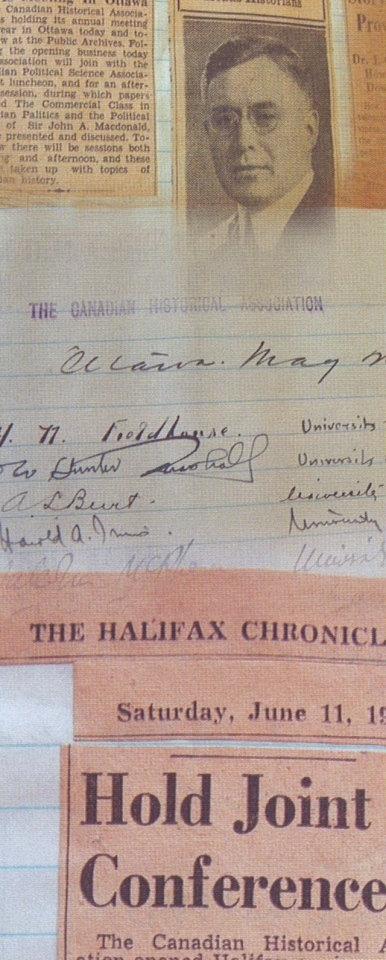 Canadian Historical Associa-
s holding its annual meeting
year in Ottawa today and to-
w at the Public Archives. Fol-
g the opening business today
ssociation will join with the
ian Political Science Associa-
t luncheon, and for an after-
session, during which papers
d The Commercial Class in
ian Palitics and the Political
of Sir John A. Macdonald,
presented and discussed. To-
w there will be sessions both
g and afternoon, and these
taken up with topics of
ian history.
Historians
Prov
Dr. J.
THE CANADIAN HISTORICAL ASSOCIATION
Ottawa. May
H. N. Fieldhouse. University
Hunter University
A L Burt. University
Harold A. Innis. University
THE HALIFAX CHRONICL
Saturday, June 11, 19
Hold Joint
Conference
The Canadian Historical A
ation opened Halifax